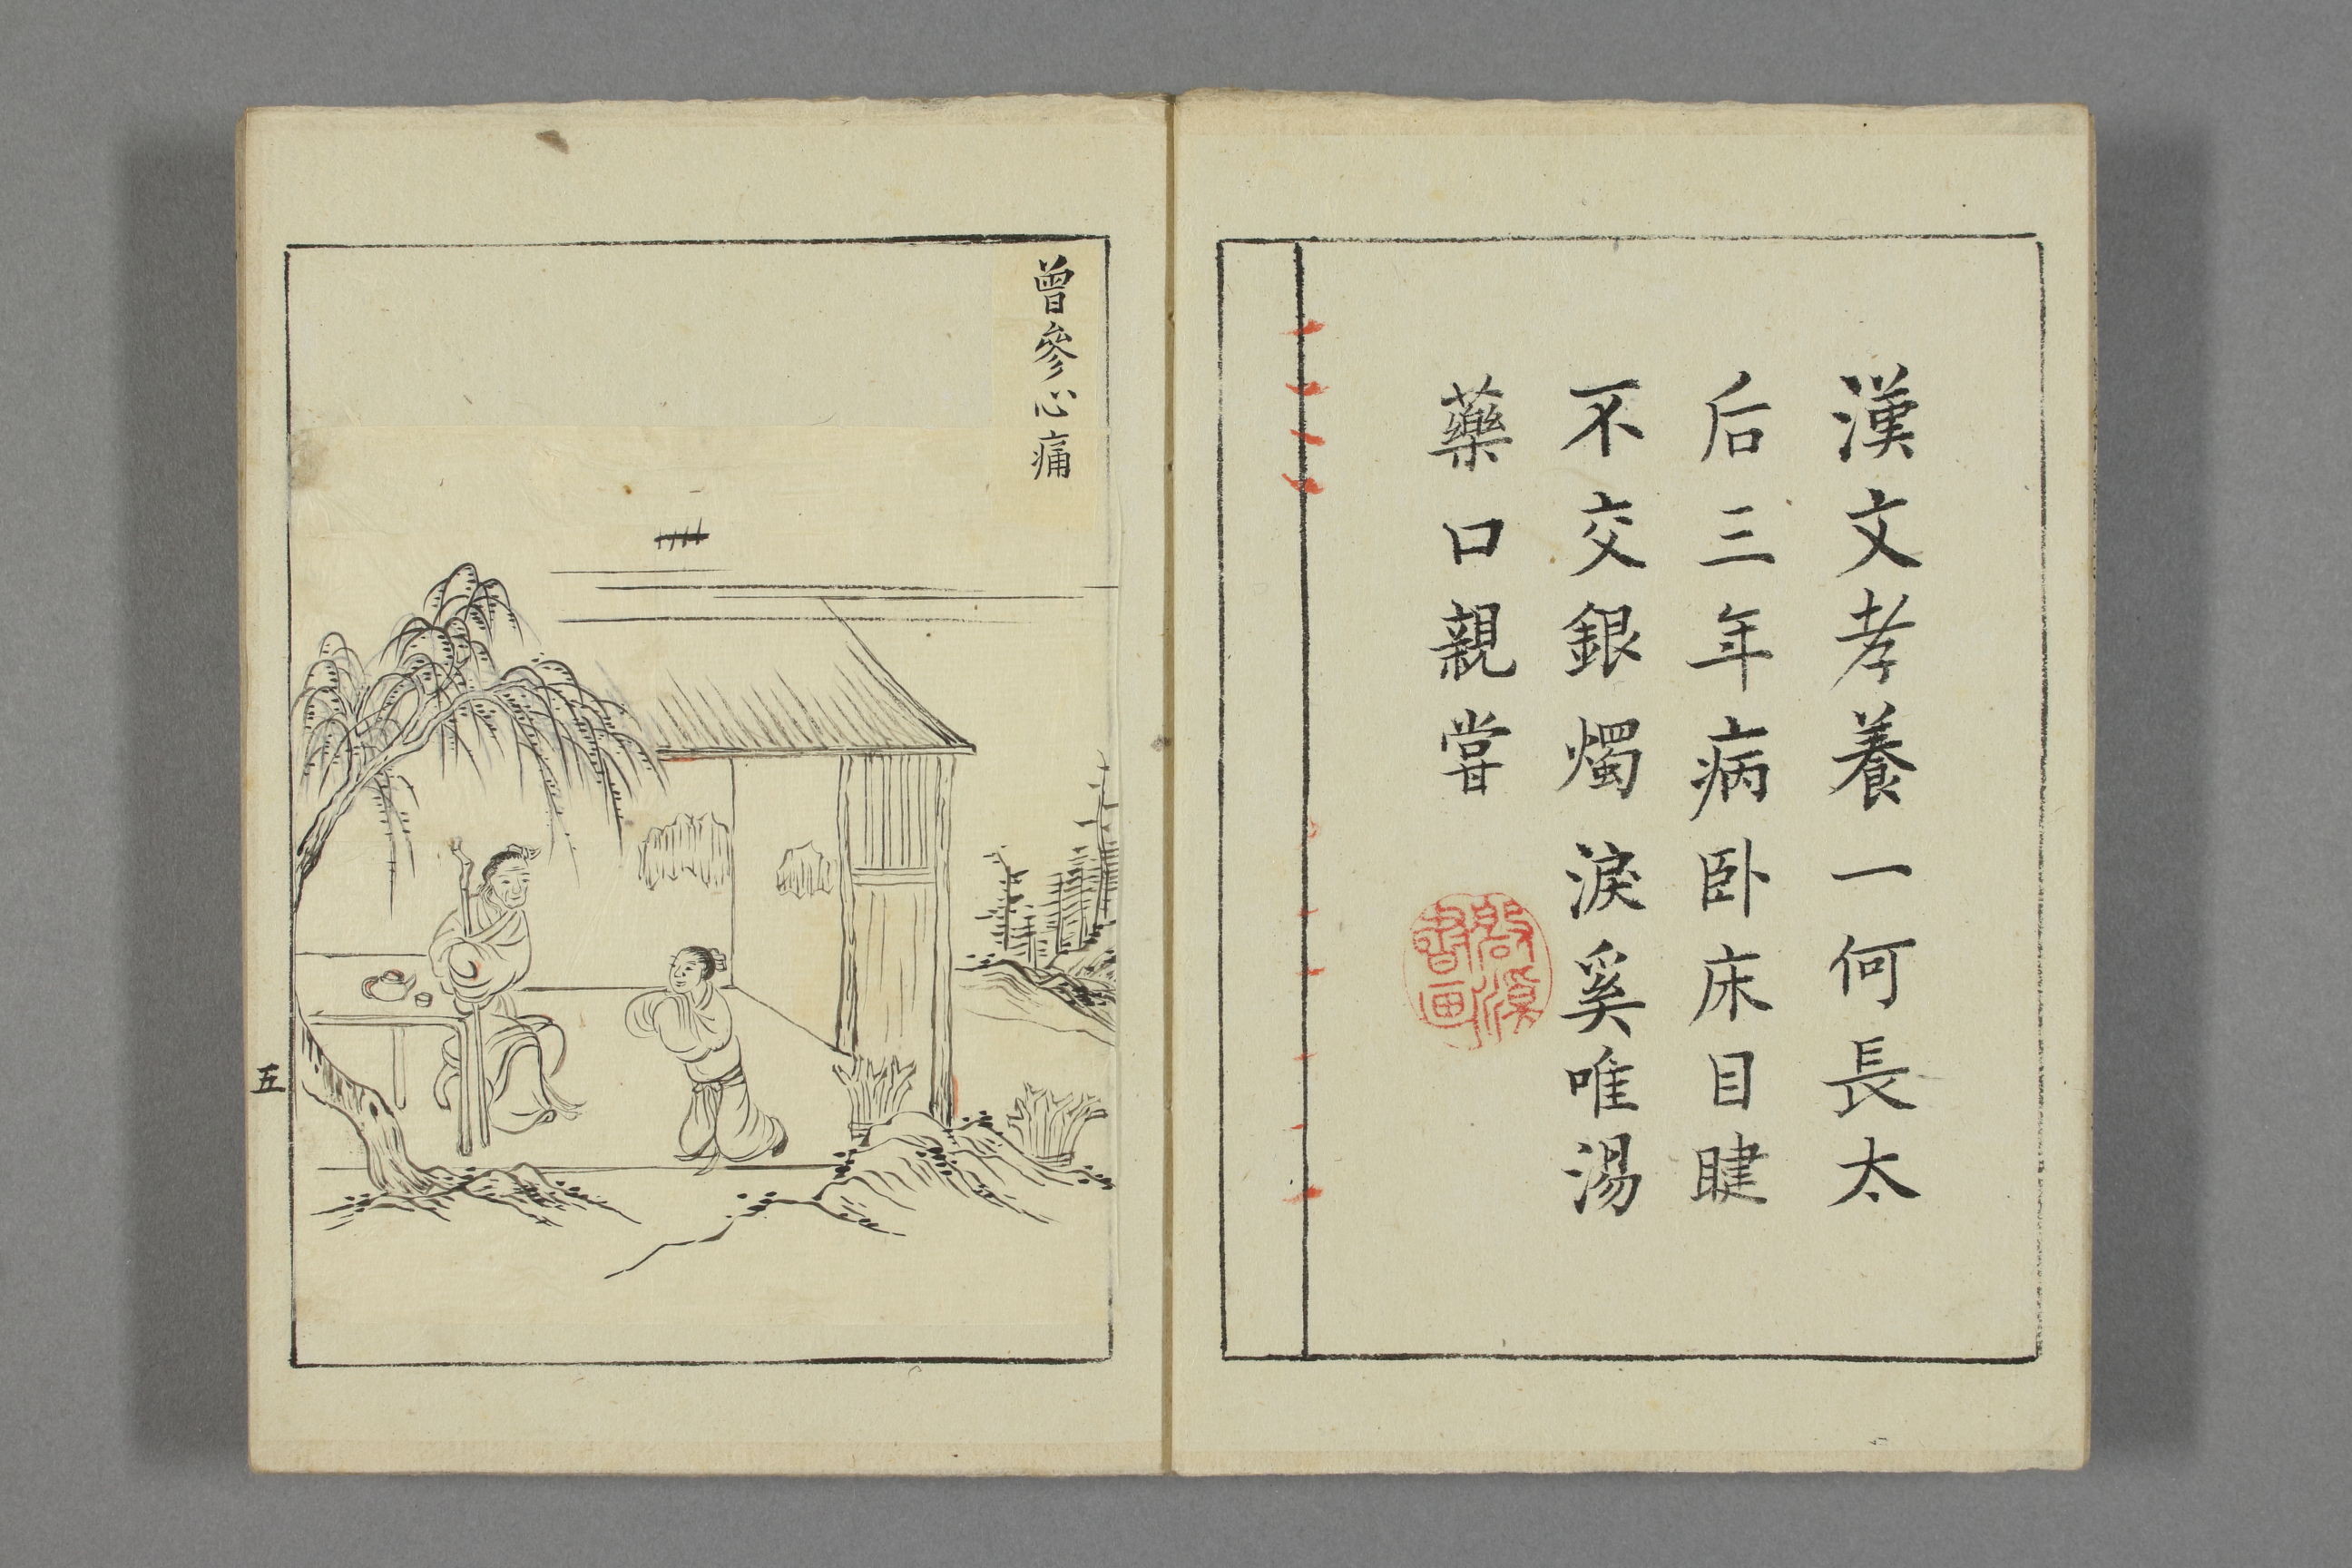 漢文孝養一何長太
后三年病卧床目睫
不交銀燭淚奚唯湯
藥口親嘗
曾參心痛
五